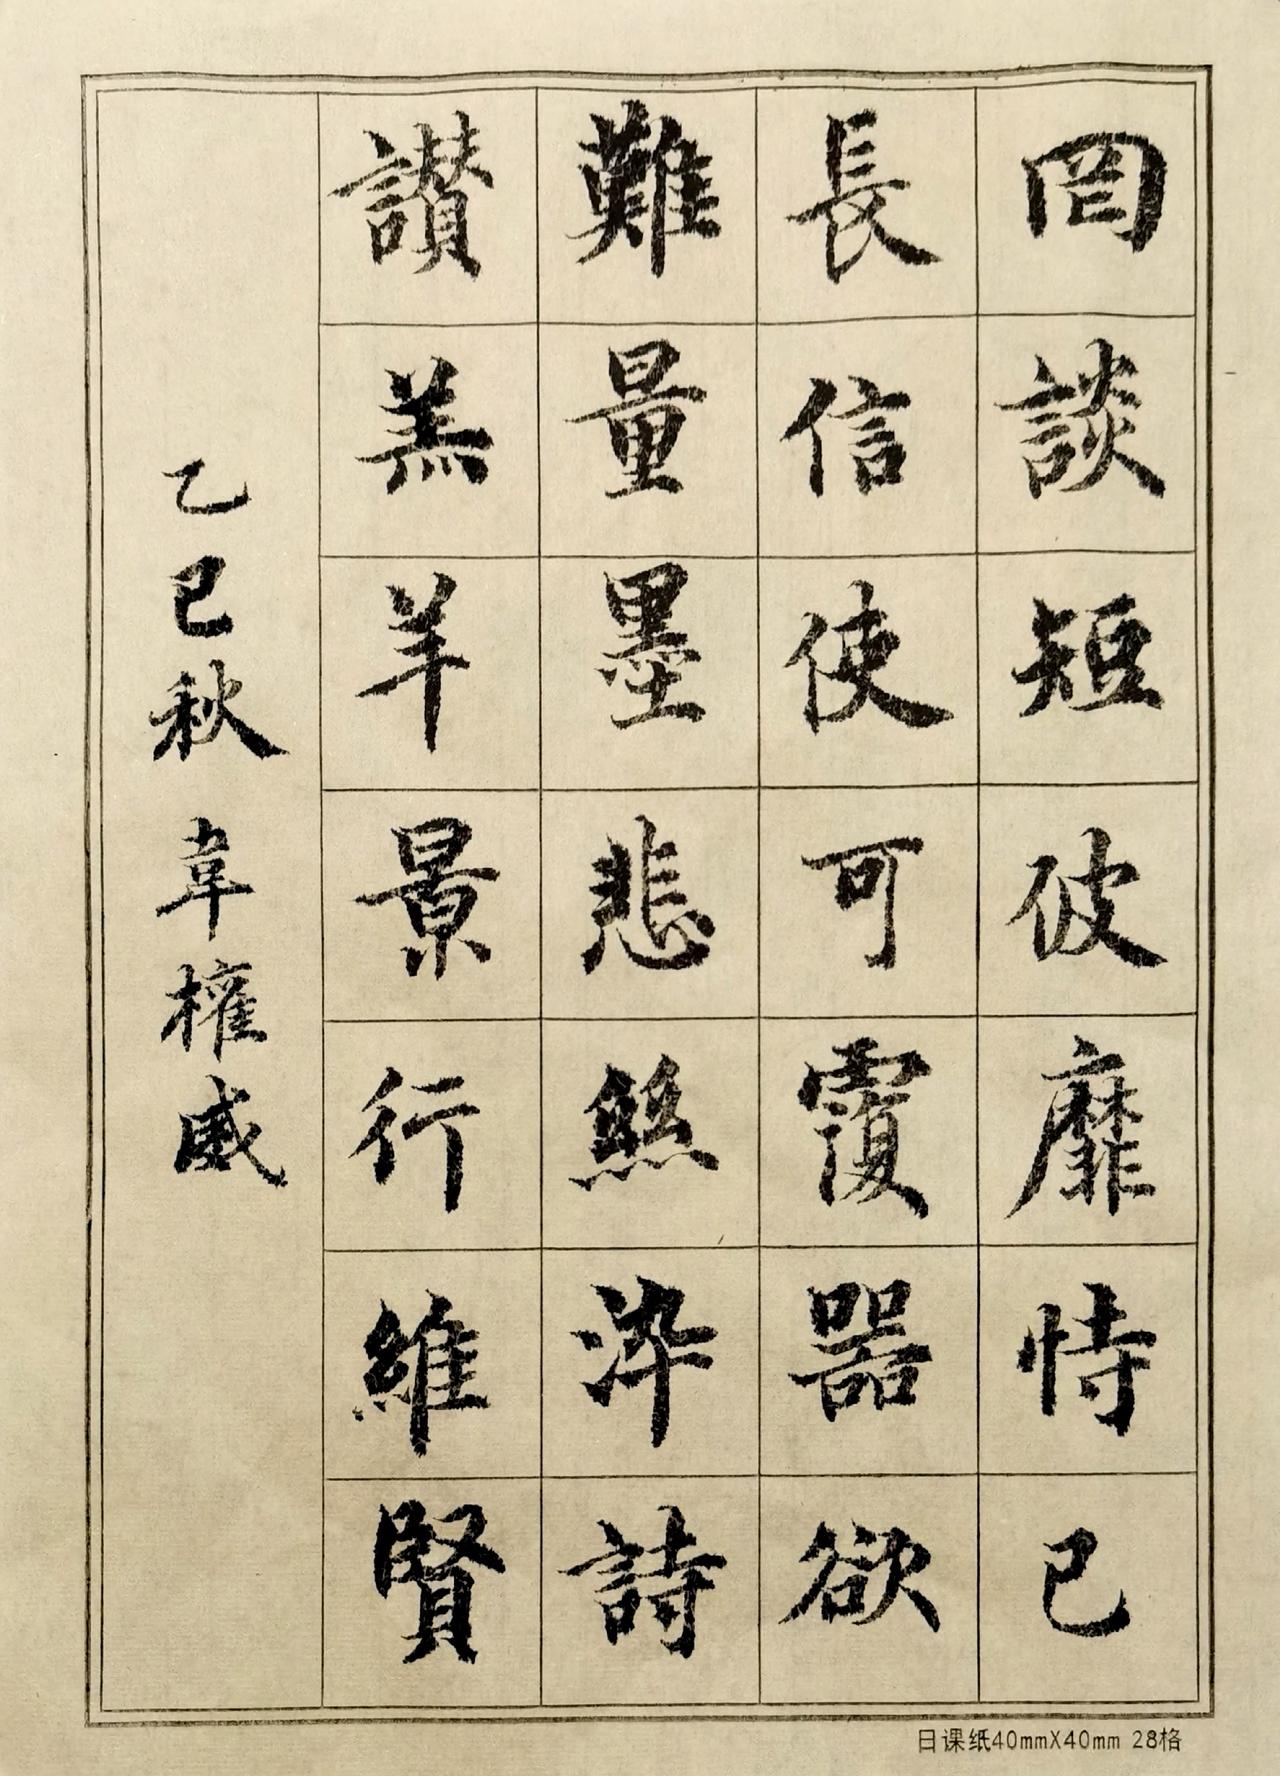 罔談短彼靡恃己
長信使可覆器欲
難量墨悲絲染詩
讃羔羊景行維賢
乙巳秋 韋權威
日课纸40mmX40mm 28格